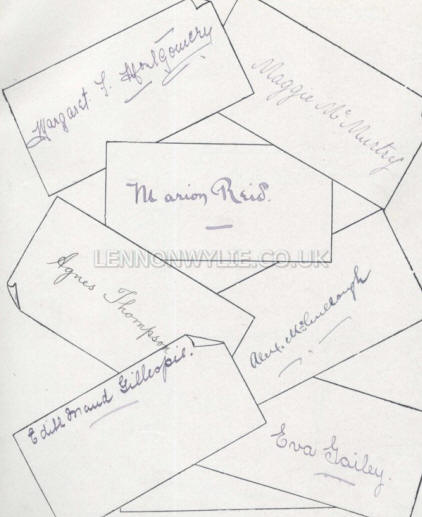 Margaret F. Montgomery
Maggie McMurtry
Marion Reid.
LENNONWYLIE.CO.UK
Agnes Thompson
Alex. McCullough
Edith Maud Gillespie.
Eva Gailey.